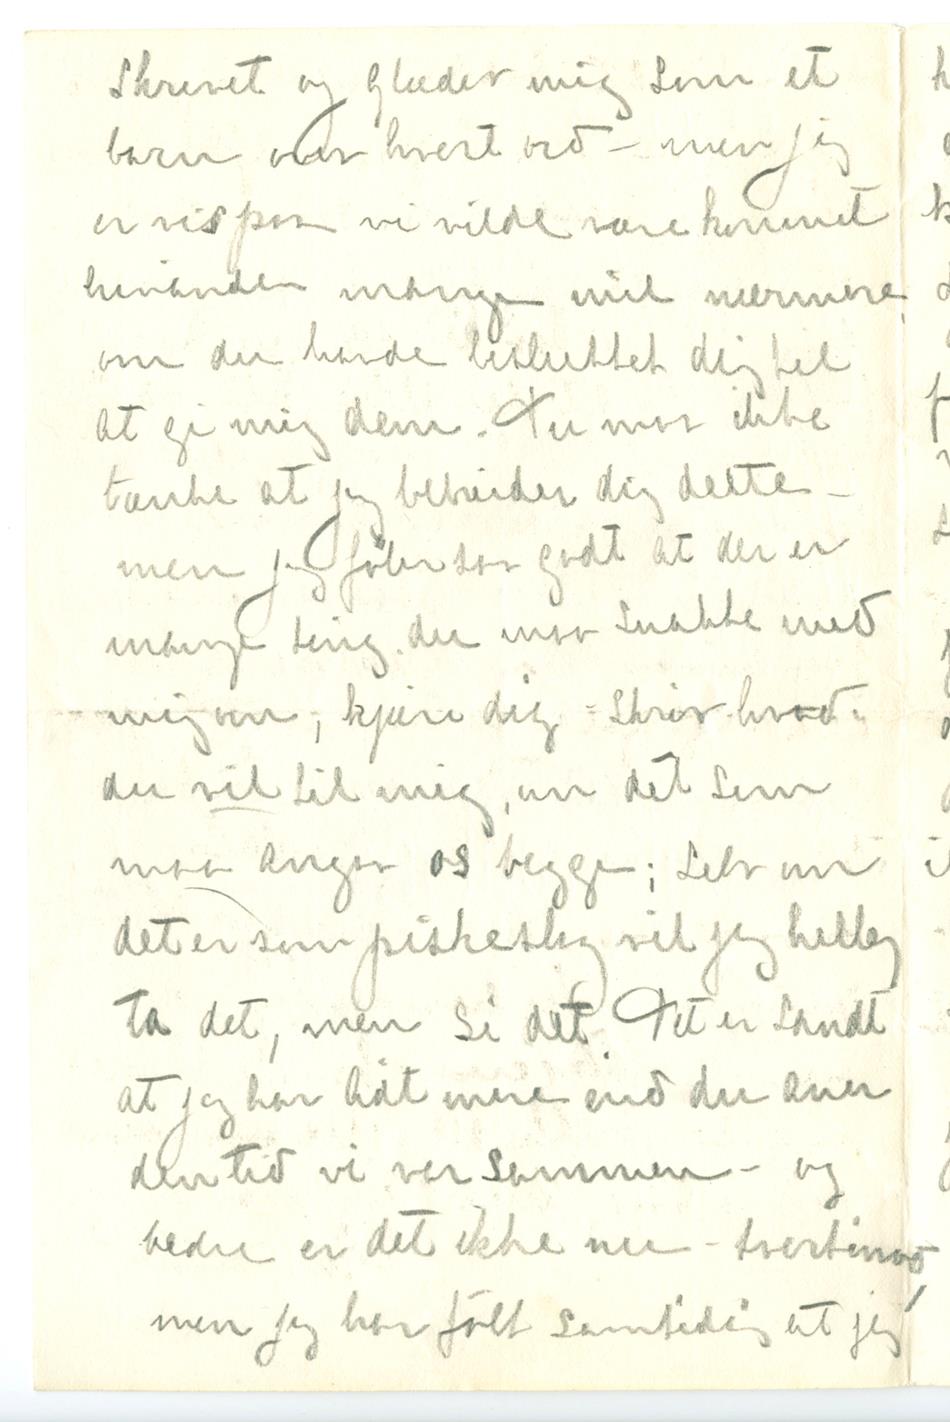 skrevet og glæder mig som et
barn over hvert ord – men jeg
er vis paa vi vilde være kommet
hinanden mange mil nærmere,
om du havde besluttet dig til
at gi mig dem. Du maa ikke
tænke at jeg bebreider dig dette –
men jeg føler saa godt at der er
mange ting du maa snakke med
mig om, kjære dig – skriv hvad
du vil til mig, om det som
maa angaa os begge; selv om
det er som piskeslag vil jeg heller
ta det, men si det. Det er sandt
at jeg har lidt mere end du aner
den tid vi var sammen – og
bedre er det ikke nu – tvertimod,
men jeg har følt samtidig at jeg